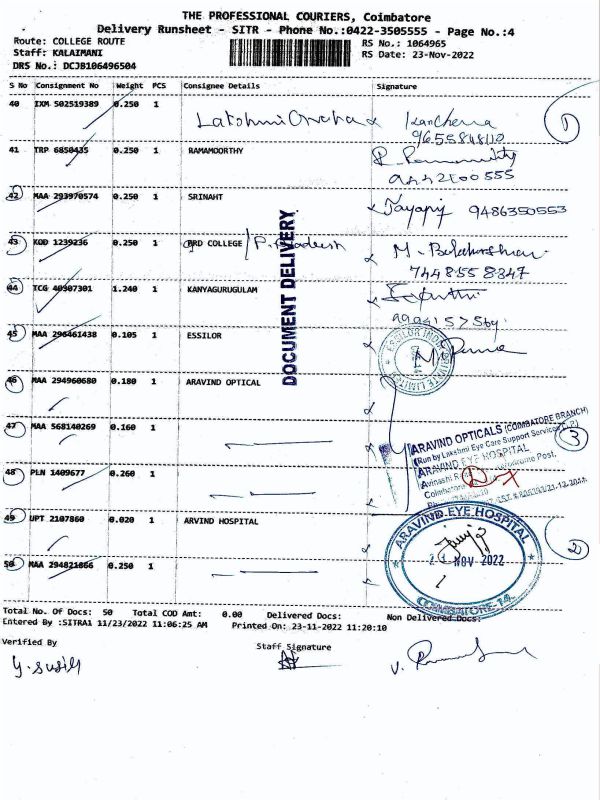 THE PROFESSIONAL COURIERS, Coimbatore
Delivery Runsheet - SITR - Phone No.:0422-3505555 - Page No.:4
Route: COLLEGE ROUTE RS No.: 1064965
Staff: KALAIMANI RS Date: 23-Nov-2022
DRS No.: DCJB106496504
S No Consignment No Weight PCS Consignee Details Signature
40 IXM 502519389 0.250 1
9655848110
41 TRP 6850435 0.250 1 RAMAMOORTHY
9442200555
42 MAA 293970574 0.250 1 SRINAHT
9486350553
43 KOD 1239236 0.250 1 PRD COLLEGE
7448558347
44 TCG 40307301 1.240 1 KANYAGURUGULAM
DOCUMENT DELIVERY
45 MAA 296461438 0.105 1 ESSILOR
46 MAA 294960680 0.180 1 ARAVIND OPTICAL
47 MAA 568140269 0.160 1
ARAVIND OPTICALS (COIMBATORE BRANCH)
(Run by Lakshmi Eye Care Support Services
ARAVIND EYE HOSPITAL
3
48 PLN 1409677 0.260 1
49 UPT 2107860 0.020 1 ARVIND HOSPITAL
2
ARAVIND EYE HOSPITAL
NOV 2022
COIMBATORE-14.
50 MAA 294821866 0.250 1
Total No. Of Docs: 50 Total COD Amt: 0.00 Delivered Docs: Non Delivered Docs:
Entered By :SITRA1 11/23/2022 11:06:25 AM Printed On: 23-11-2022 11:20:10
Verified By Staff Signature